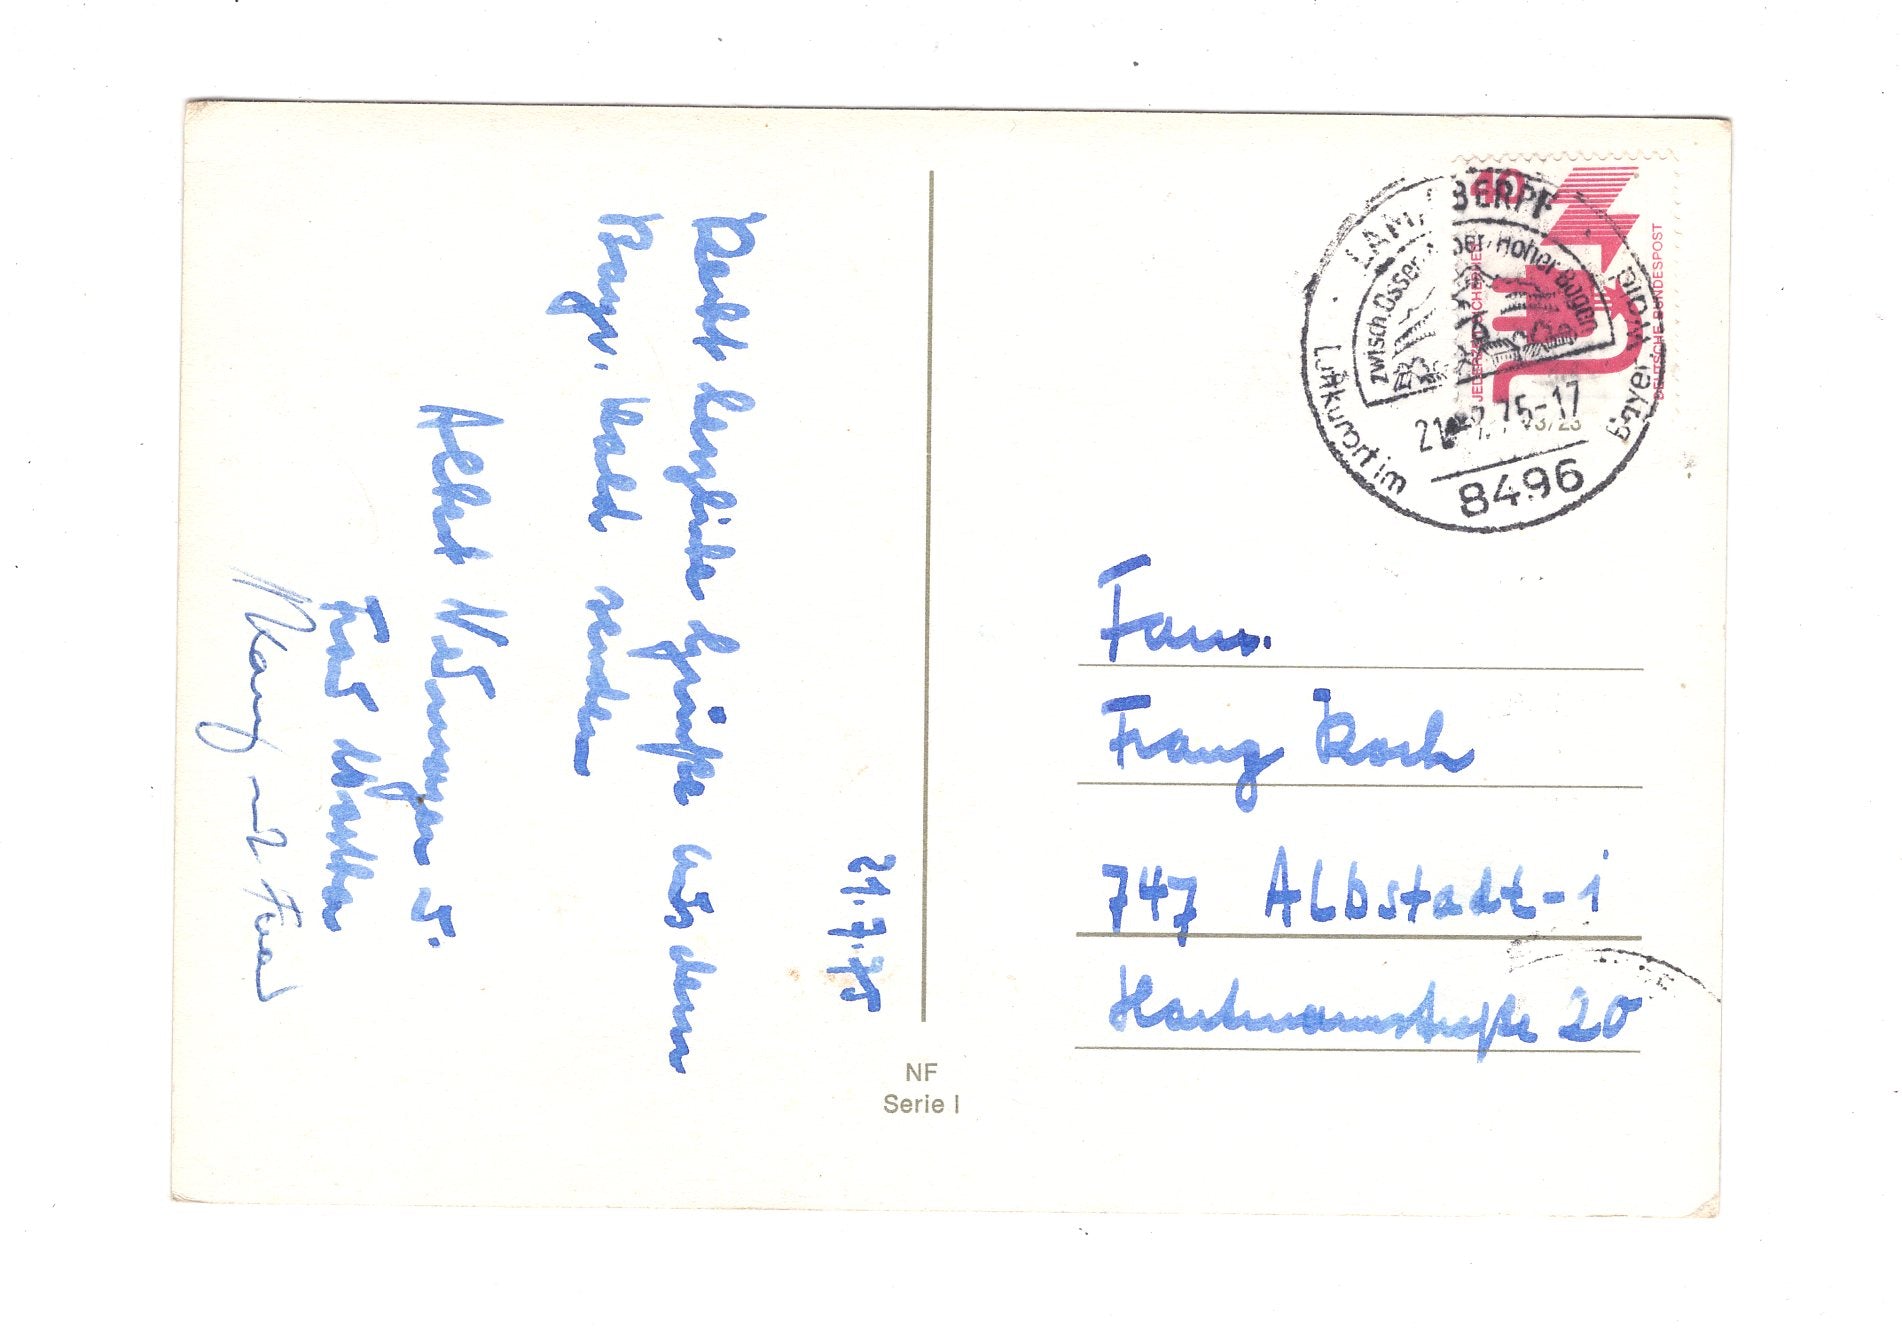 21.7.75
Recht herzliche Grüße aus dem
Bayr. Wald senden
Albert
Frau
und Frau
NF
Serie I
40
JEDERZEIT SICHERHEIT
DEUTSCHE BUNDESPOST
LAM, OBERPF
zwisch. Osser, Hoher Bogen
21.-7.75-17
8496
Luftkurort im Bayer. Wald
Fam.
Franz Koch
747 Albstadt-1
Hartmannstraße 20